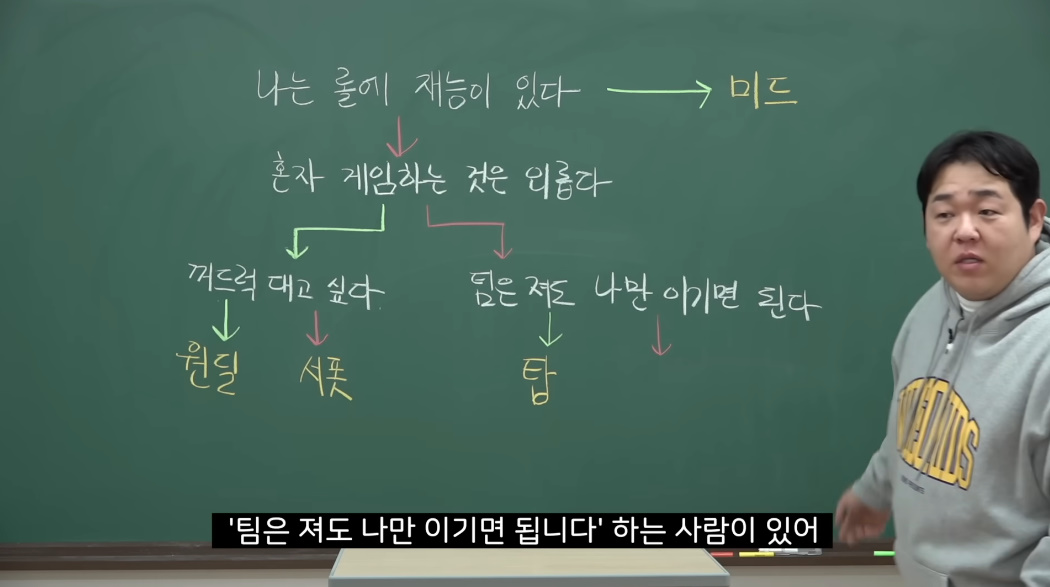 나는 롤에 재능이 있다 → 미드
혼자 게임하는 것은 외롭다
꺼드럭 대고 싶다
팀은 져도 나만 이기면 된다
원딜 서폿 탑
'팀은 져도 나만 이기면 됩니다' 하는 사람이 있어